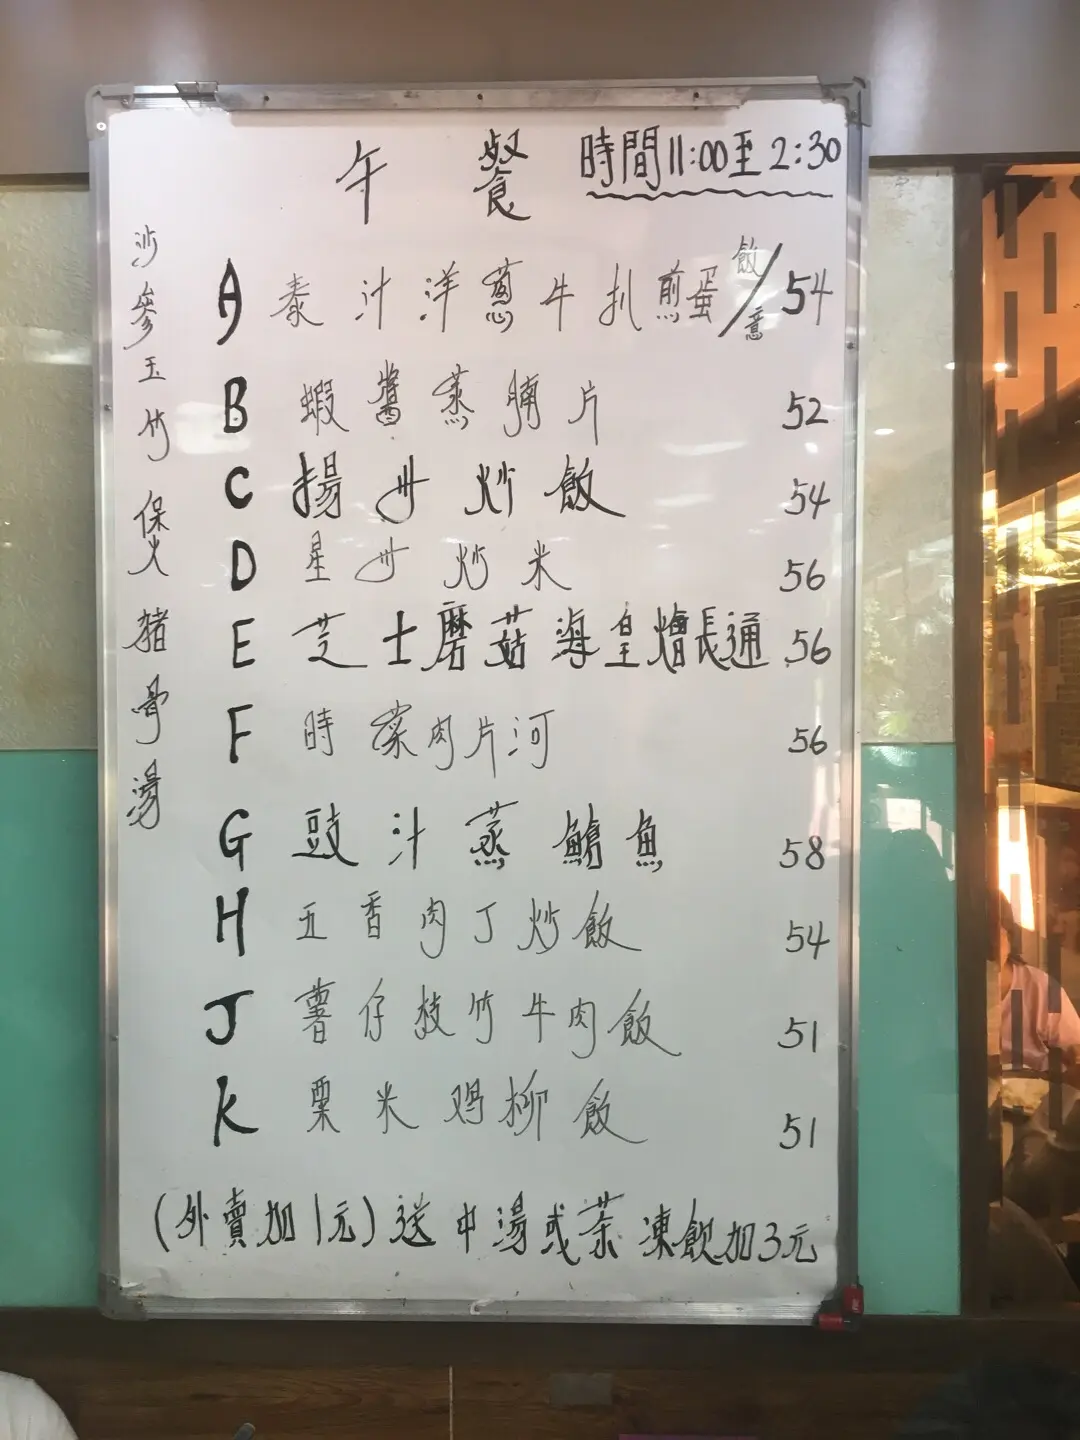 午餐 時間11:00至2:30
沙參玉竹煲豬骨湯
A 泰汁洋蔥牛扒煎蛋飯/意 54
B 蝦醬蒸腩片 52
C 揚州炒飯 54
D 星州炒米 56
E 芝士磨菇海皇燴長通 56
F 時菜肉片河 56
G 豉汁蒸鯧魚 58
H 五香肉丁炒飯 54
J 薯仔枝竹牛肉飯 51
K 粟米鸡柳飯 51
(外賣加1元)送中湯或茶 凍飲加3元